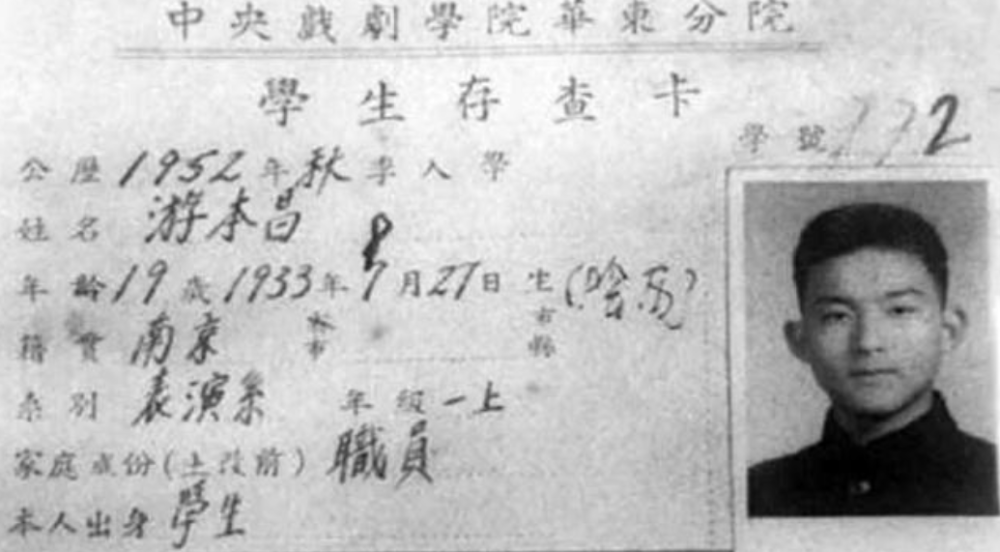 中央戲劇學院華東分院
學生存查卡
學號 172
公歷1952年秋季入學
姓名 游本昌
年齡19歲1933年8月27日生(陰历)
籍貫 南京 市 市縣
系別 表演系 年級 一上
家庭成份(土改前) 職員
本人出身 學生